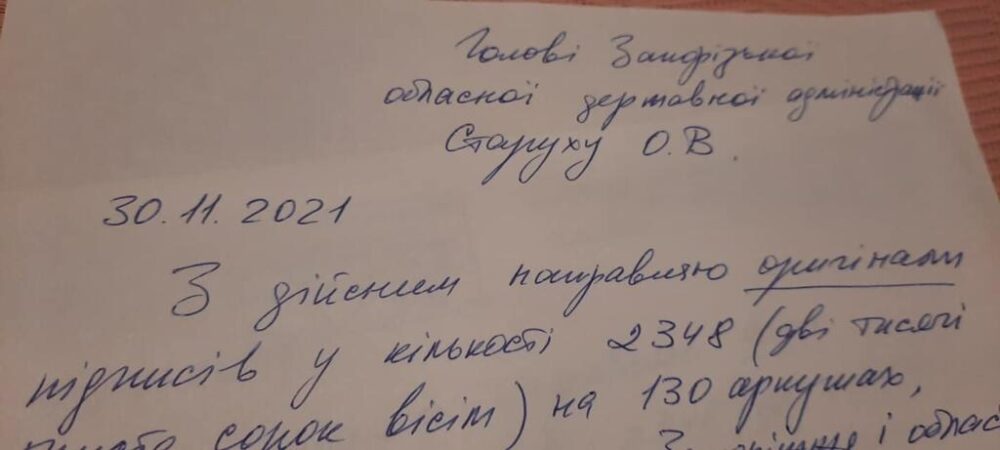 Голові Запорізької
обласної державної адміністрації
Старуху О.В.
30.11.2021
З дійсним направляю оригінали
підписів у кількості 2348 (дві тисячі
триста сорок вісім) на 130 аркушах,
і облас